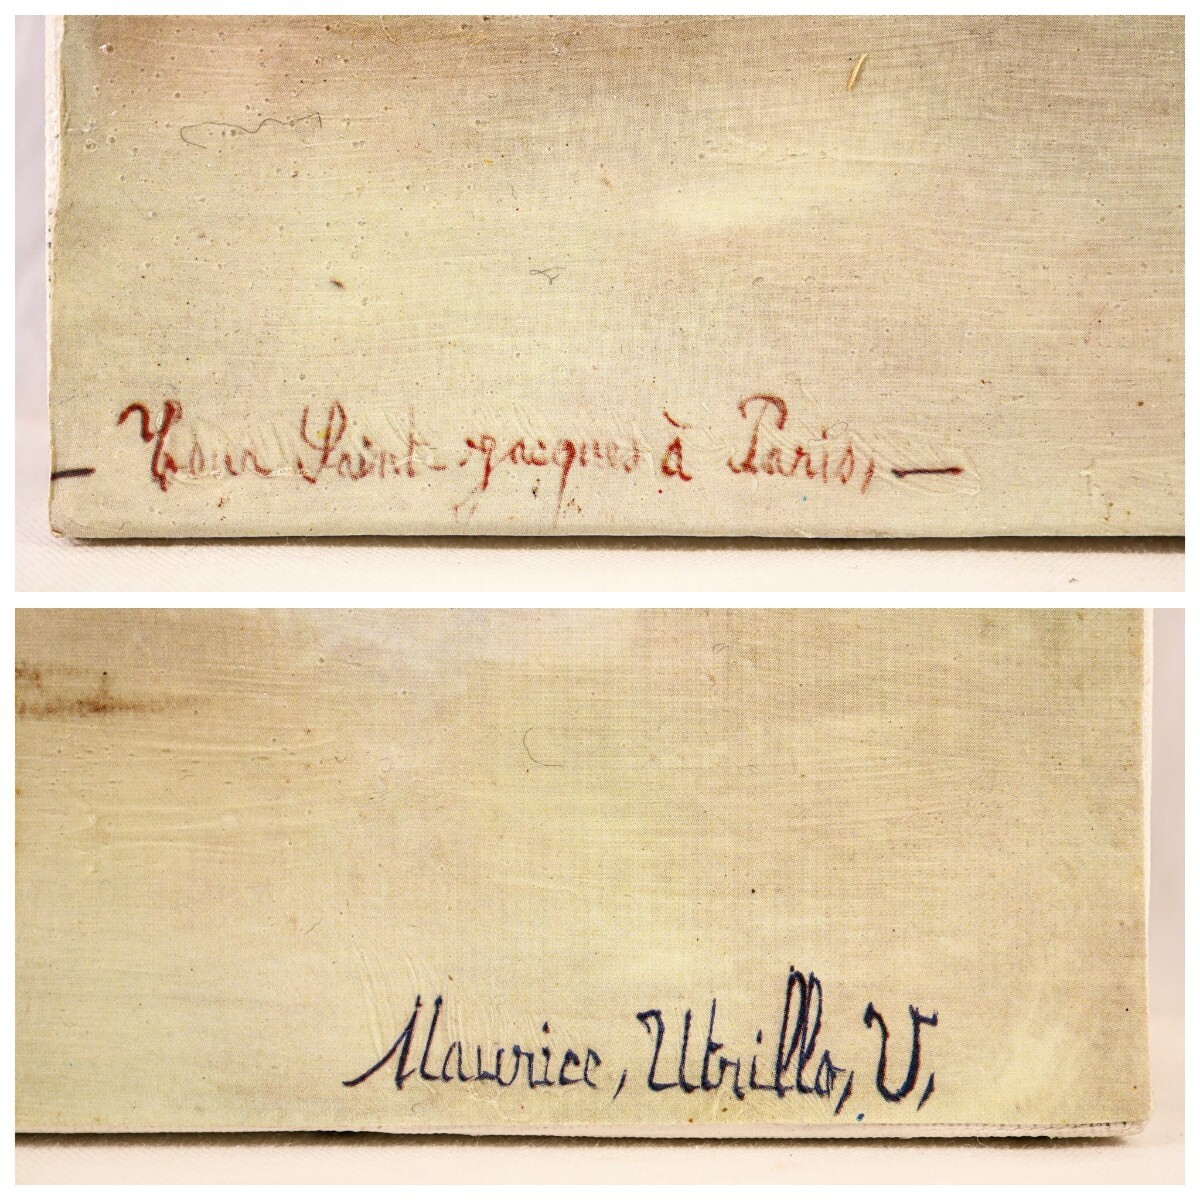 — Tour Saint-Jacques à Paris, —
Maurice, Utrillo, V,